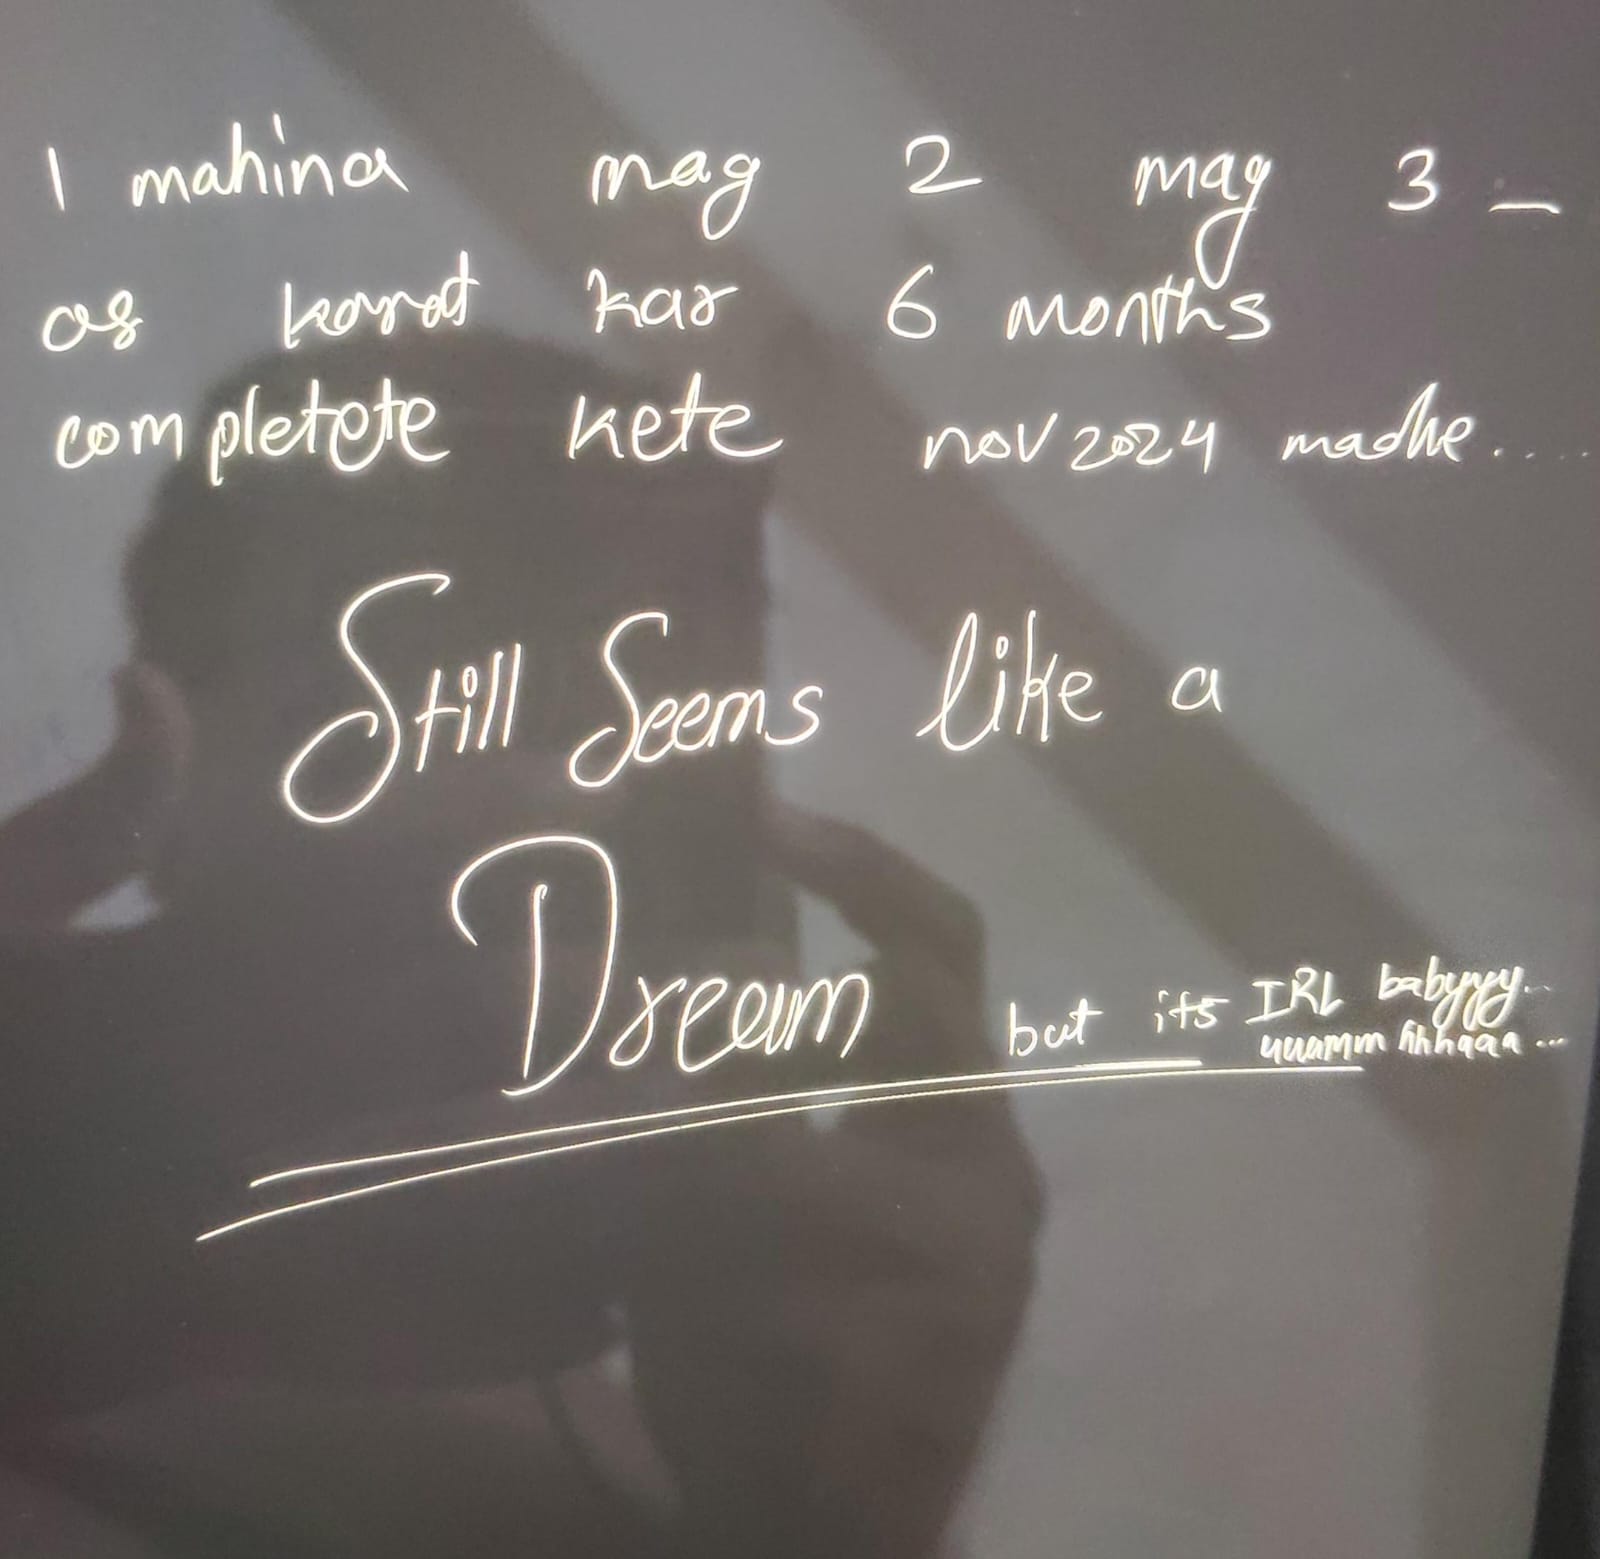 1 mahina mag 2 mag 3 _
as karat kar 6 months
completete kete nov 2024 madhe.....
Still Seems like a
Dream but its IRL babyyyy..
uuamm hhhaaa...